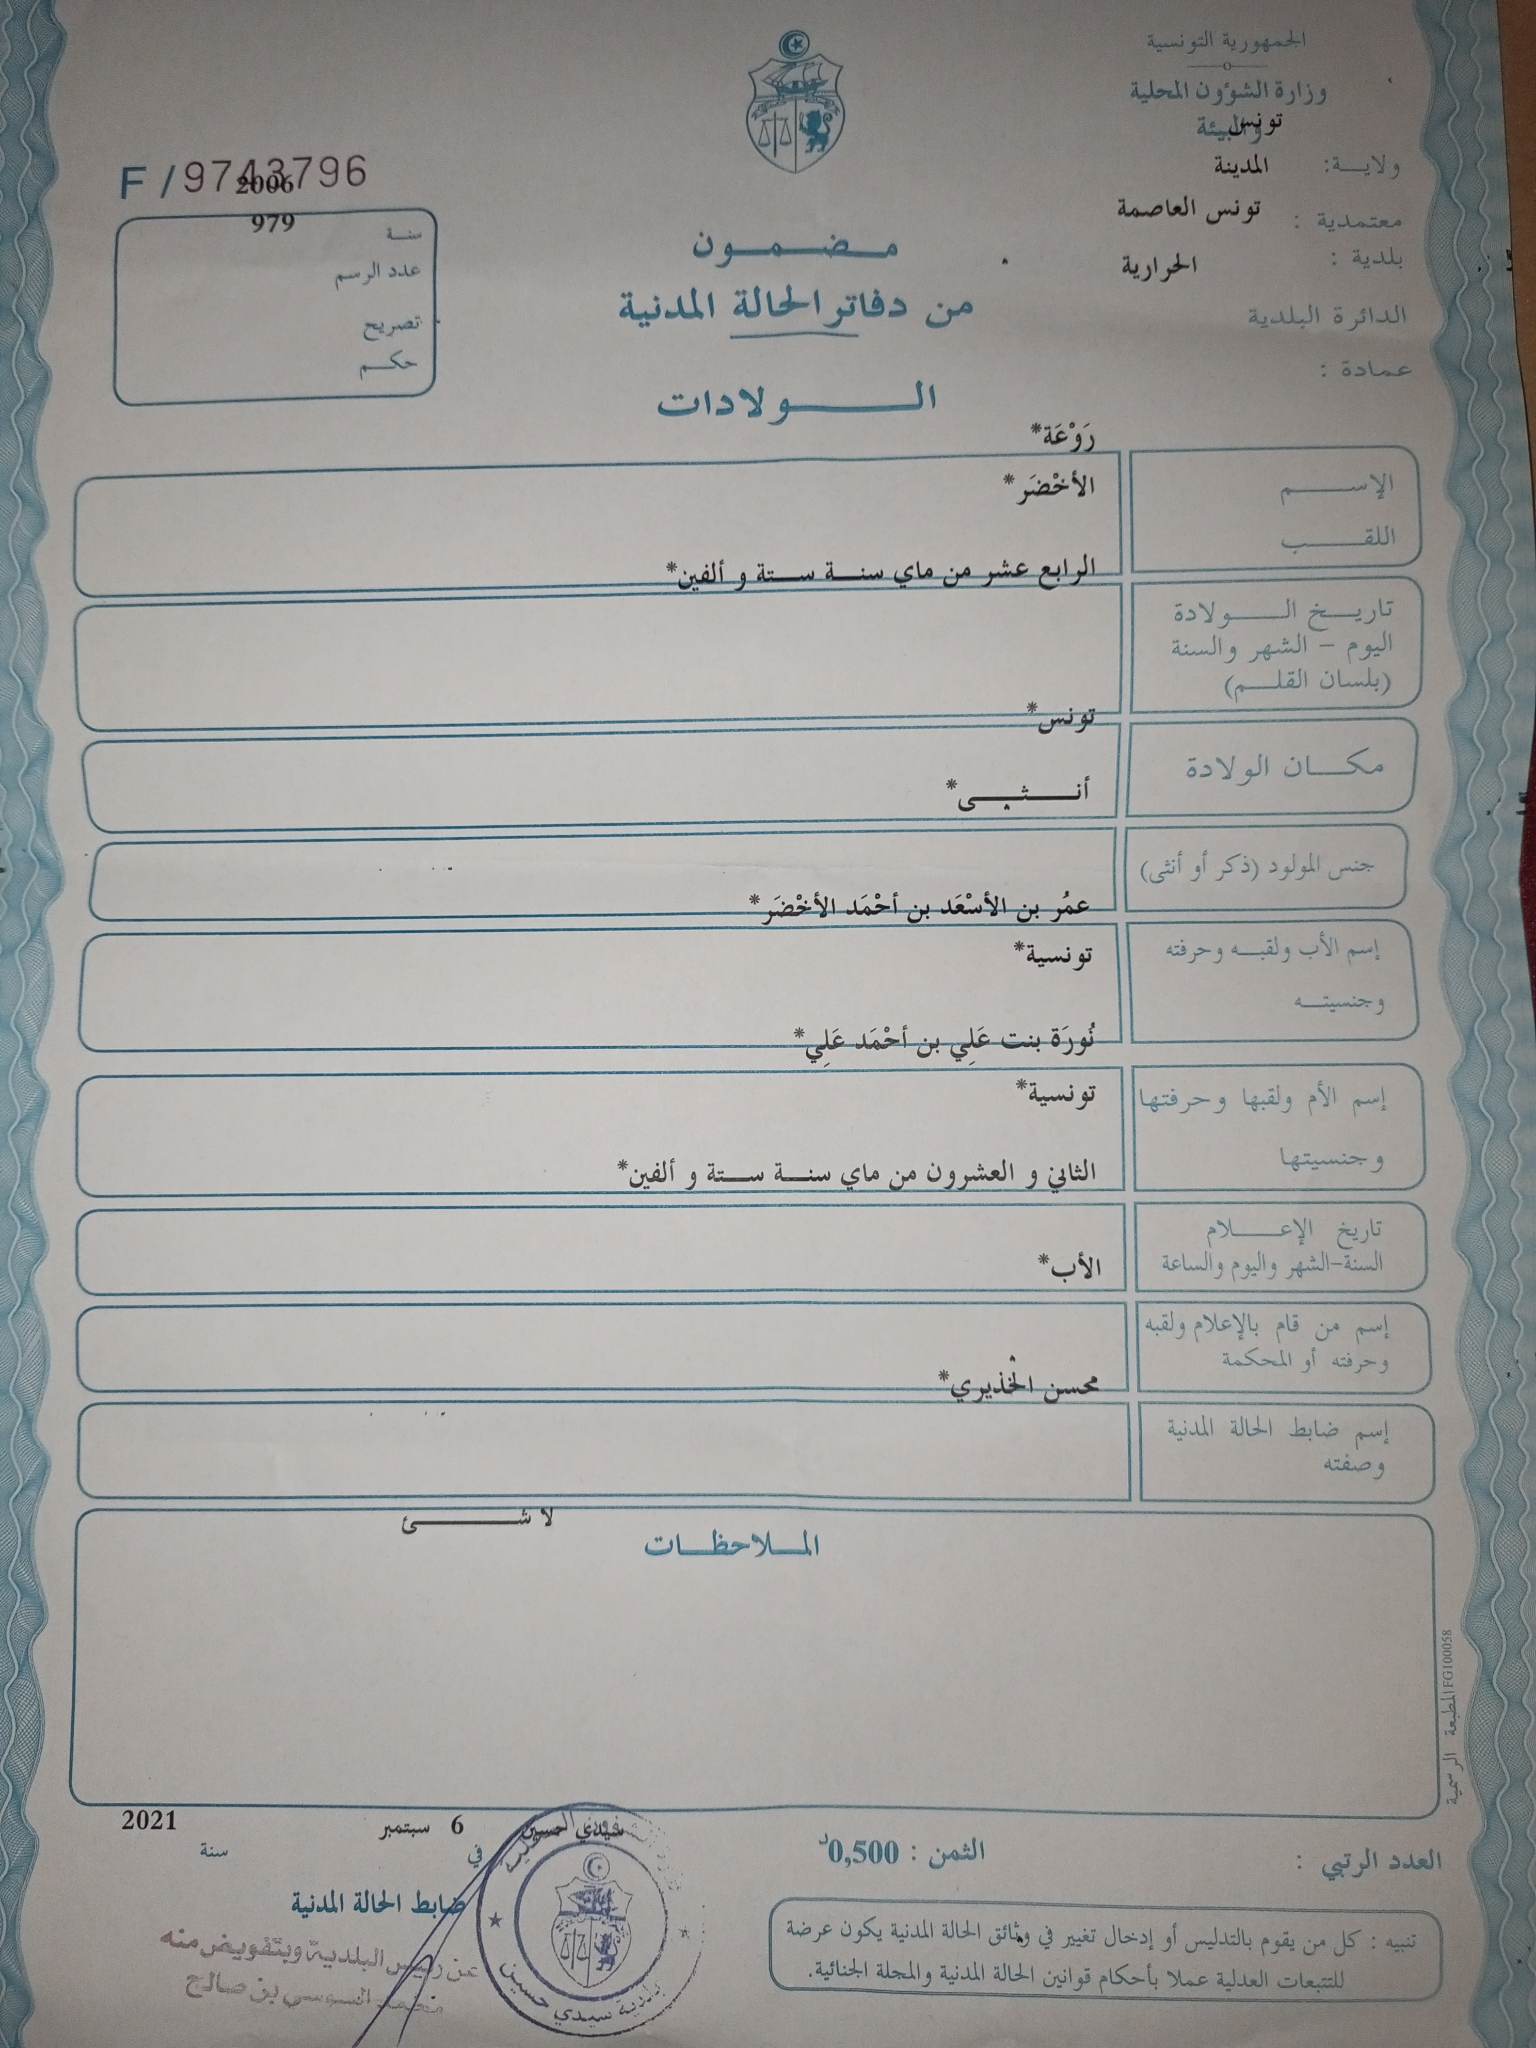 الجمهورية التونسية
وزارة الشؤون المحلية
والبيئة
تونس
ولاية:
المدينة
معتمدية :
تونس العاصمة
بلدية :
الحرارية
الدائرة البلدية
عمادة :
F / 9743796
2006
سنة
979
عدد الرسم
تصريح
حكم
مضمون
من دفاتر الحالة المدنية
الولادات
رَوْعَة*
الإسم
الأخْضَر*
اللقب
الرابع عشر من ماي سنة ستة و ألفين*
تاريخ الولادة
اليوم - الشهر والسنة
(بلسان القلم)
تونس*
مكان الولادة
أنثى*
جنس المولود (ذكر أو أنثى)
عمُر بن الأسْعَد بن أحْمَد الأخْضَر*
إسم الأب ولقبه وحرفته
تونسية*
وجنسيته
نُورَة بنت عَلِي بن أحْمَد عَلِي*
إسم الأم ولقبها وحرفتها
تونسية*
وجنسيتها
الثاني و العشرون من ماي سنة ستة و ألفين*
تاريخ الإعلام
السنة-الشهر واليوم والساعة
الأب*
إسم من قام بالإعلام ولقبه
وحرفته أو المحكمة
محسن الخذيري*
إسم ضابط الحالة المدنية
وصفته
لا شئ
الملاحظات
المطبعة الرسمية FG100058
سيدي حسين
6 سبتمبر
2021
في
سنة
العدد الرتبي :
الثمن : 0,500د
ضابط الحالة المدنية
عن رئيس البلدية وبتفويض منه
السوسي بن صالح
بلدية سيدي حسين
تنبيه : كل من يقوم بالتدليس أو إدخال تغيير في وثائق الحالة المدنية يكون عرضة
للتتبعات العدلية عملا بأحكام قوانين الحالة المدنية والمجلة الجنائية.